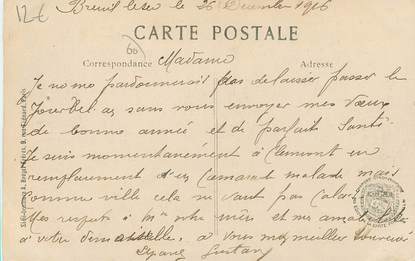 12€
Breuil le sec le 26 Décembre 1916
CARTE POSTALE
60
Correspondance
Adresse
Madame
Je ne me pardonnerait pas de laisser passer le
Jour de l'an sans vous envoyer mes Vœux
de bonne année et de parfait Santé
Je suis momentanément à Clermont en
remplacement d'un Camarade malade mais
Comme ville cela ne vaut pas
Mes respects à Mme votre mère et
à votre demoiselle, à vous mes meilleur souvenir
Gustave